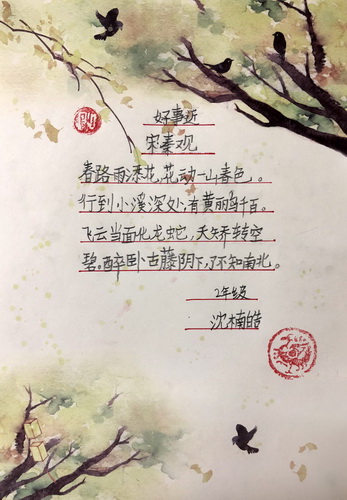 好事近
宋秦观
春路雨添花,花动一山春色,。
行到小溪深处,有黄鹂千百。
飞云当面化龙蛇,夭矫转空
碧。醉卧古藤阴下,了不知南北。
2年级
沈楠皓